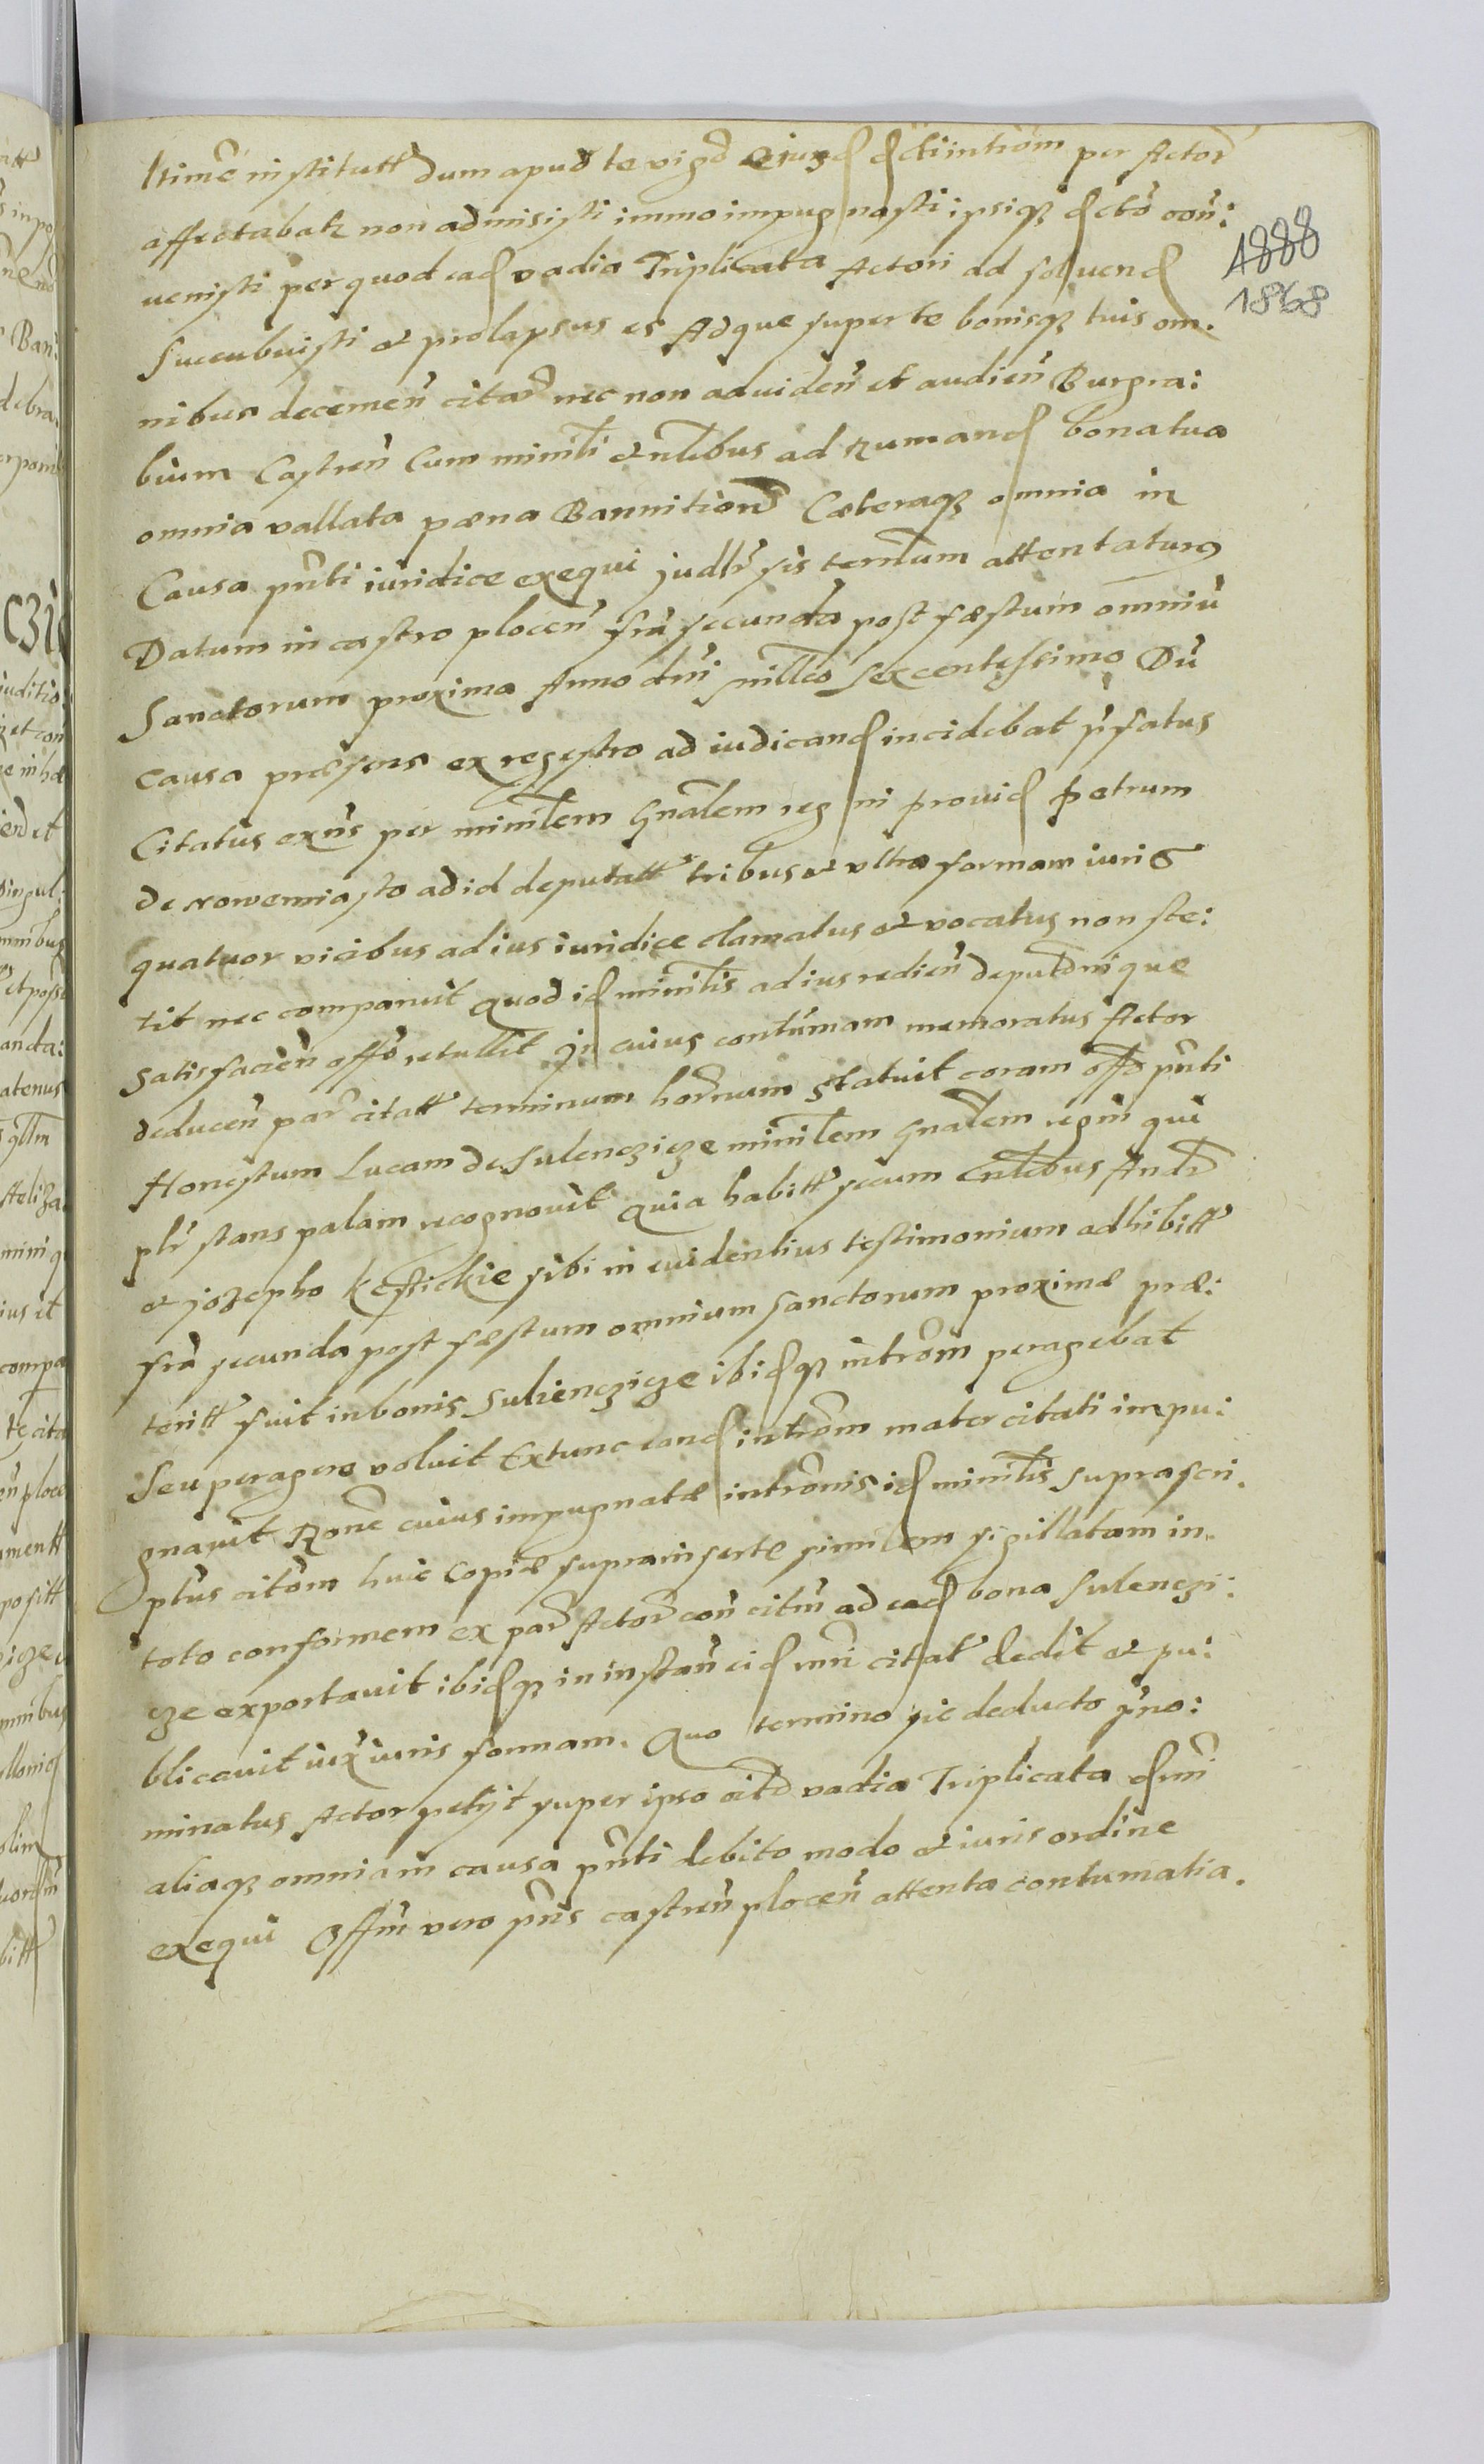 ltime institutt dum apud te vigd eiusd dcti introm per Actor
affectabatz non admisisti immo impugnasti ipsiqz dcto con:
uenisti per quod ead vadia Triplicata Actori ad soluend
Succubuisti et prolapsus es Adque super te bonisqz tuis om.
nibus decernen citar nec non ad viden et audien Burgra:
bium Castren Cum ministri et nlibus ad rumand bona tua
omnia vallata pæna Bannitions Cæteraqz omnia in
Causa pnti iuridice exequi judlr sis termum attentaturus
Datum in castro plocen fria secunda post fæstum omniu
Sanctorum proxima Anno dni millco Sexcentessimo Du
causa præsens ex regestro ad iudicand incidebat pfatus
Citatus exns per minilem Gnalem regni prouid petrum
de nowemiasto ad id deputatt tribus et vltra formam iuris
quatuor vicibus ad ius iuridice clamatus et vocatus non ste:
tit nec comparuit quod id minilis ad ius redien deputonique
satisfacien offo retullit In cuius contumam memoratus Actor
deducen par citatt terminum hornum statuit coram offo pnti
Honestum Lucam de Sulenczicze minilem Gnalem regni qui
plr stans palam recognouit quia habitt secum Cnlibus Andr
et jozepho Kesickie sibi in euidentius testimonium adhibitt
fria secunda post fæstum omnium sanctorum proximæ præ:
teritt fuit in bonis Sulienczicze ibidqz introm peragebat
Seu peragere voluit Extunc eand introm mater citati impu:
gnauit Rone cuius impugnatæ intromis id minilis suprascri.
ptus citom huic copiæ suprainsertæ similem sigillatam in.
toto conformem ex par Actor con citm ad ead bona Sulenczi:
cze exportauit ibidqz in instan eid mri citat dedit et pu:
blicauit iux iuris formam. Quo termino sic deducto pno:
minatus Actor petijt super ipso citto vadia Triplicata dmi
aliaqz omnia in causa pnti debito modo et iuris ordine
exequi Offm vero pns castren plocen attenta contumatia.
1888
1868